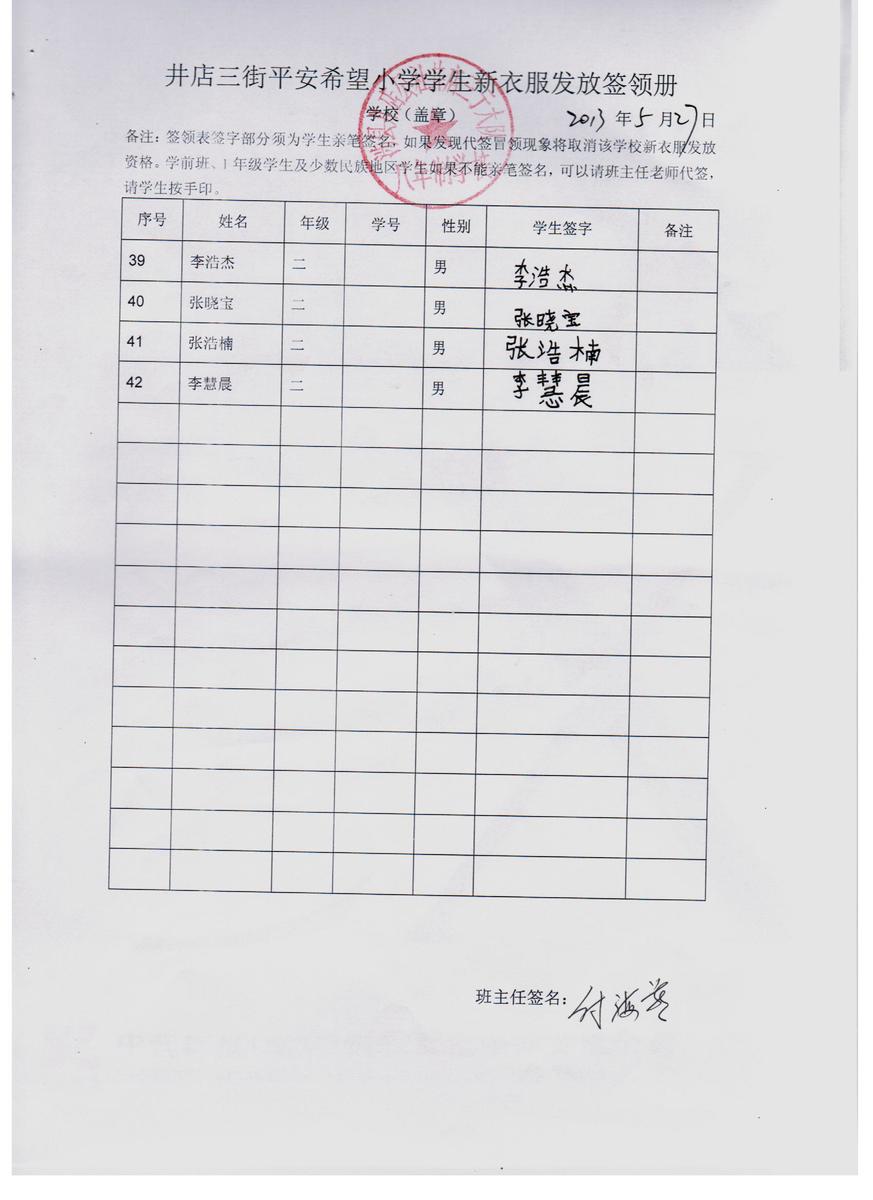 井店三街平安希望小学学生新衣服发放签领册
学校（盖章）
2013 年 5 月 27 日
备注：签领表签字部分须为学生亲笔签名，如果发现代签冒领现象将取消该学校新衣服发放
资格。学前班、1 年级学生及少数民族地区学生如果不能亲笔签名，可以请班主任老师代签，
请学生按手印。
序号 姓名 年级 学号 性别 学生签字 备注
39 李浩杰 二 男 李浩杰
40 张晓宝 二 男 张晓宝
41 张浩楠 二 男 张浩楠
42 李慧晨 二 男 李慧晨
八年制学校
班主任签名：付海